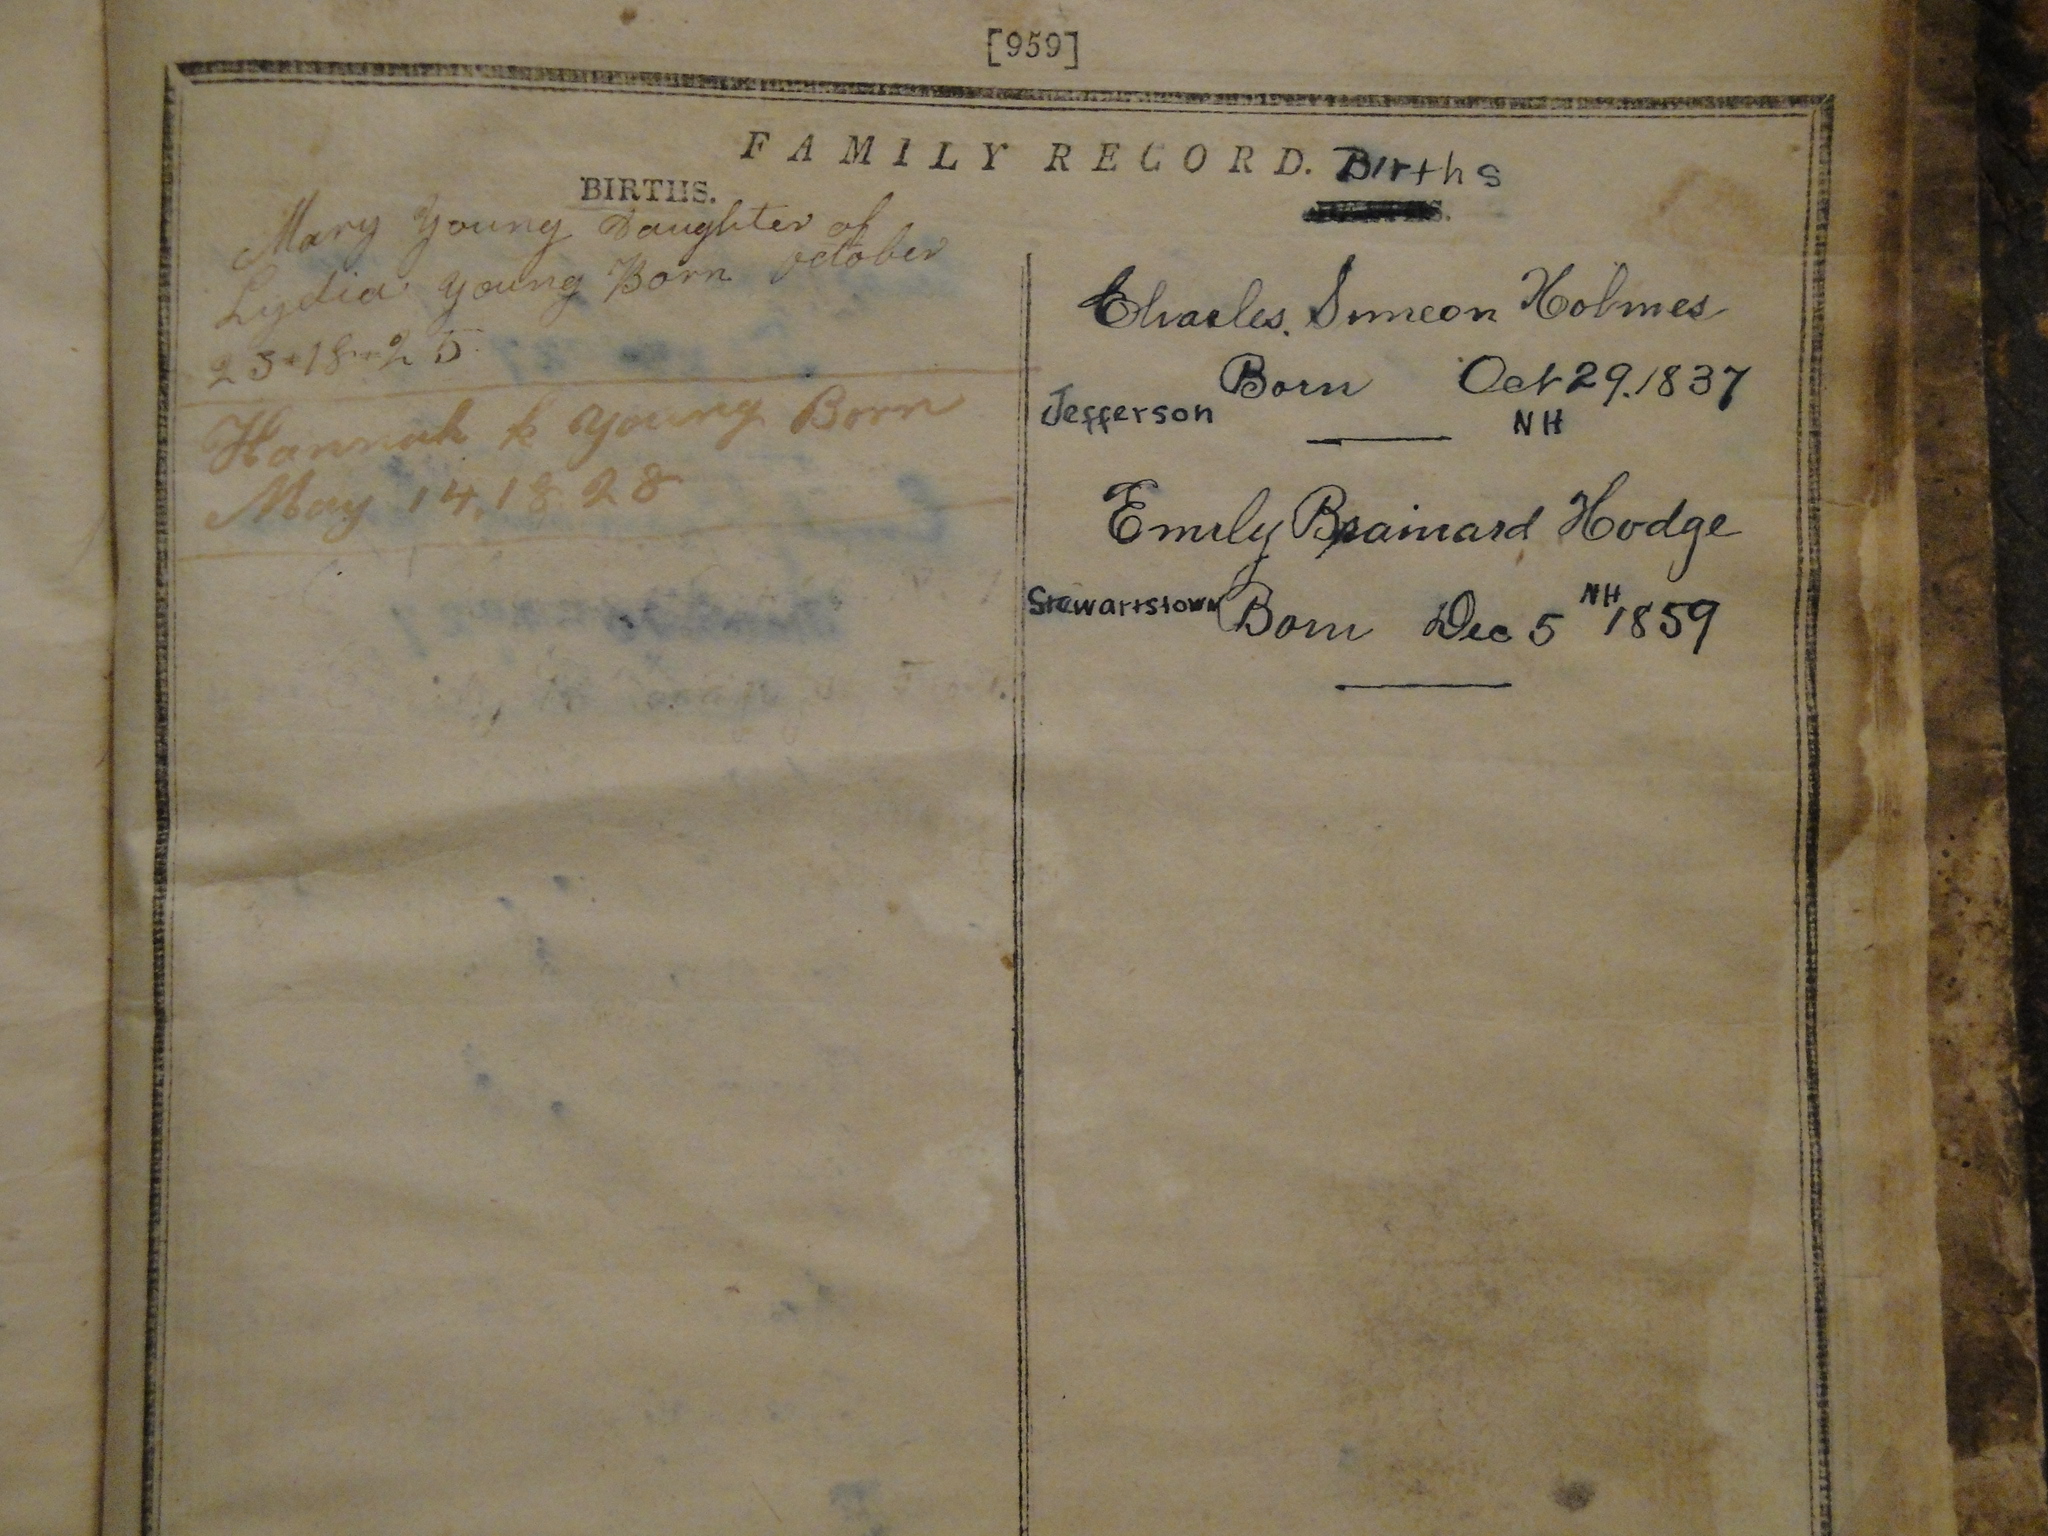 [959]
FAMILY RECORD. Births
BIRTHS.
Mary Young Daughter of
Lydia Young Born October
23 18 25
Hannah k Young Born
May 14, 18 28
Charles. Simeon Holmes
Born Oct 29. 1837
Jefferson NH
Emily Brainard Hodge
Stewartstown NH
Born Dec 5 1859